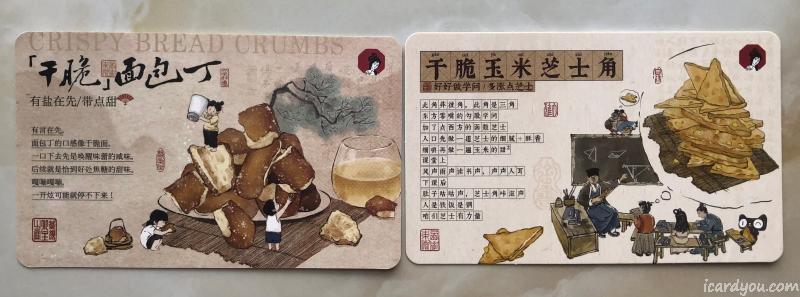 CRISPY BREAD CRUMBS
「干脆」面包丁
有盐在先/带点甜
有言在先,
面包丁的口感像干脆面,
一口下去先是唤醒味蕾的咸味,
后续就是恰到好处焦糖的甜味,
嘎嘣嘎嘣,
一开炫可能就停不下来!
干脆玉米芝士角
好好做学问/多涨点芝士
此角非彼角,此角是三角
东方零嘴的勾股学问
加了点西方的面数芝士
入口先做一道芝士的细腻+酥香
细磨再聚一题玉米的甜²
课堂上
风声雨声读书声,声声入耳
下课后
肚子咕咕声,芝士角咔滋声
人是铁饭是钢
咱有芝士有力量
icardyou.com